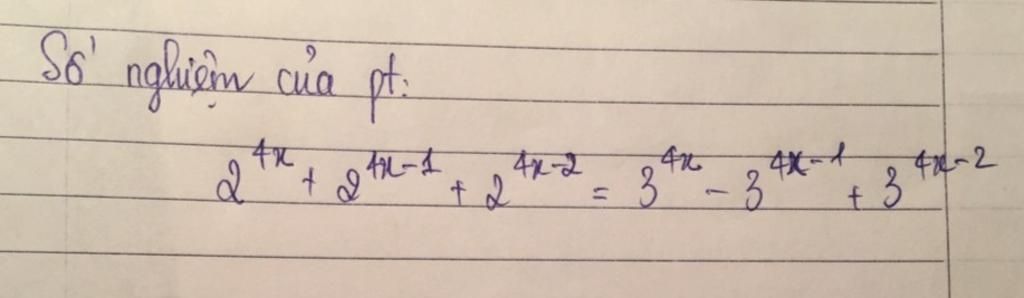 Số nghiệm của pt:
2^{4x} + 2^{4x-1} + 2^{4x-2} = 3^{4x} - 3^{4x-1} + 3^{4x-2}